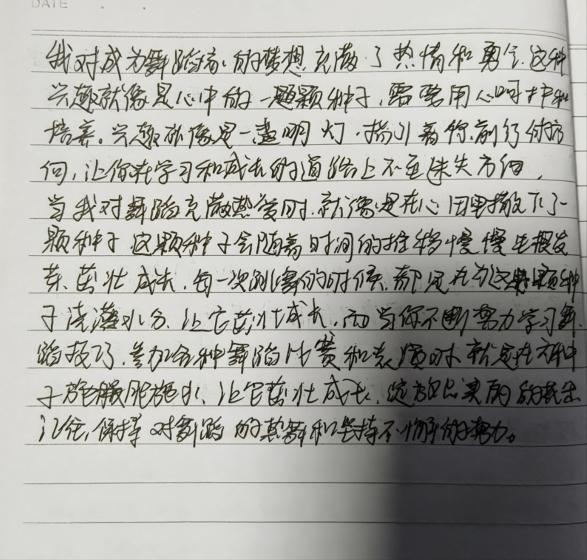 DATE . .
我对成为舞蹈家的梦想充满了热情和勇气,这种
兴趣就像是心中的一颗种子,需要用心呵护和
培养。兴趣就像是一盏明灯,指引着你前行的方
向,让你在学习和成长的道路上不至迷失方向,
当我对舞蹈充满热爱时,就像是在心田里撒下了一
颗种子 这颗种子会随着时间的推移慢慢生根发
芽、茁壮成长,每一次跳舞的时候,都是在为这颗种
子浇灌水分,让它茁壮成长,而当你不断努力学习舞
蹈技巧,参加各种舞蹈比赛和表演时,就是在为种
子施肥浇水,让它茁壮成长,绽放出美丽的花朵
记住,保持对舞蹈的热爱和坚持不懈的努力。